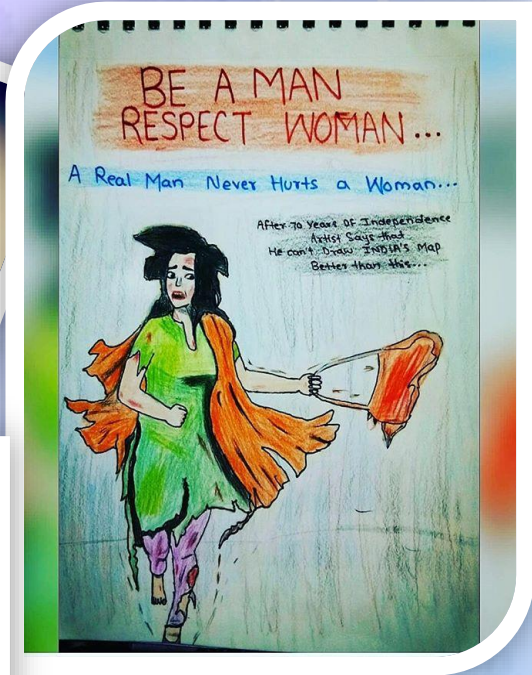 BE A MAN
RESPECT WOMAN...
A Real Man Never Hurts a Woman...
After 70 Years OF Independence
Artist Says that
He can't Draw INDIA'S Map
Better than this...